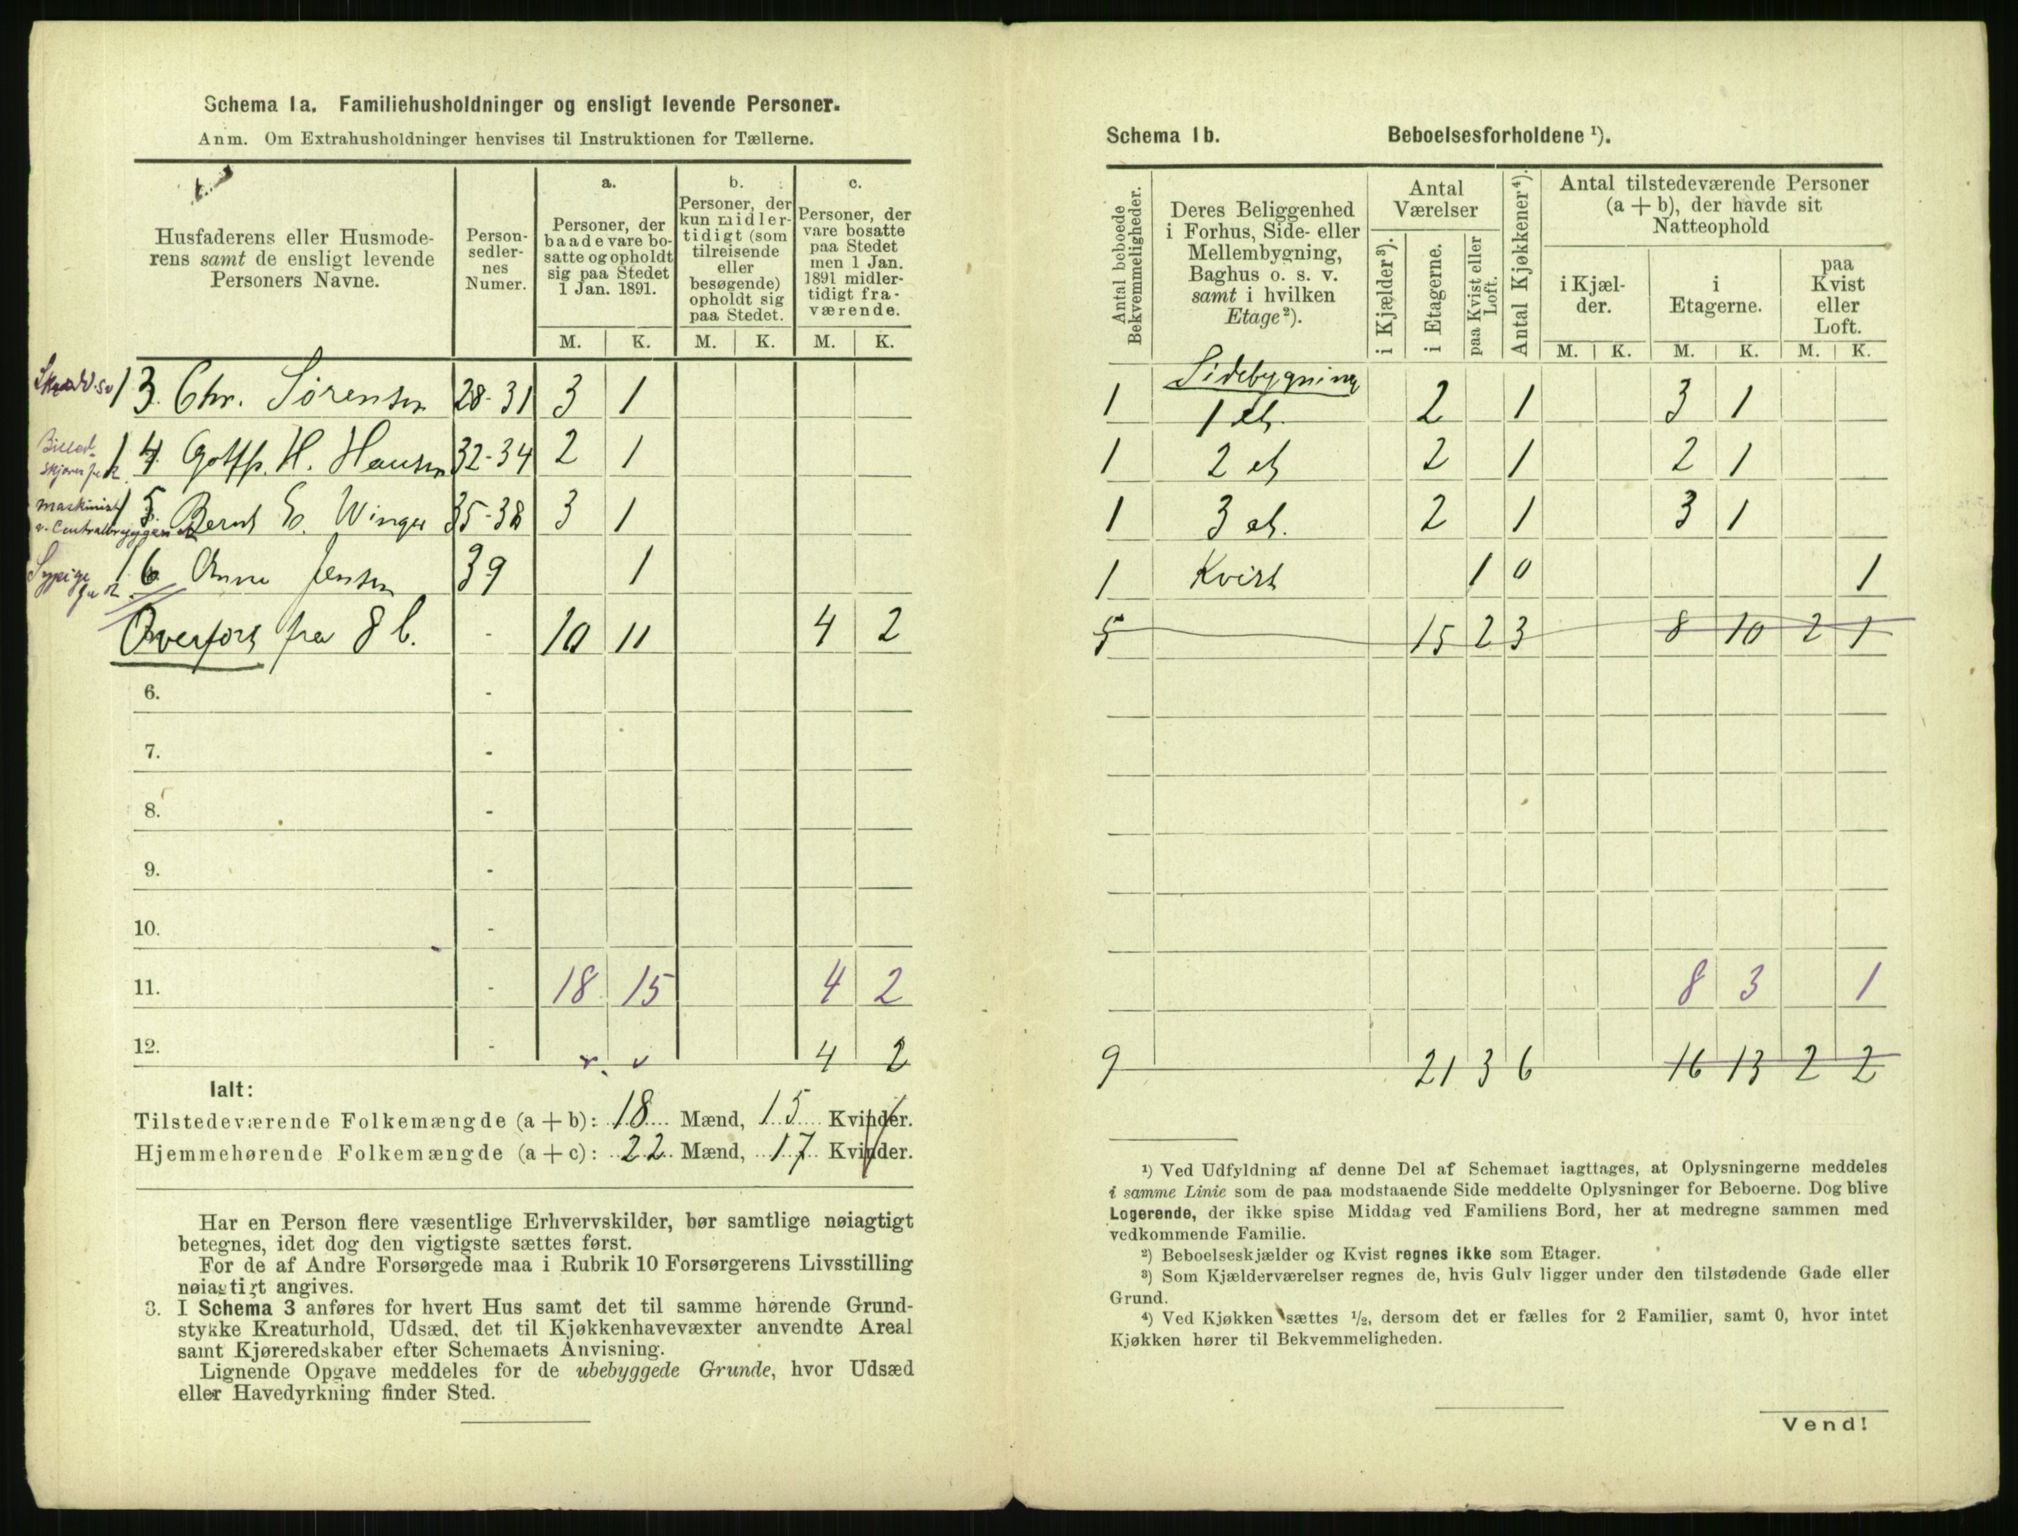 Schema 1a. Familiehusholdninger og ensligt levende Personer.
Anm. Om Extrahusholdninger henvises til Instruktionen for Tællerne.
Husfaderens eller Husmode-
rens samt de ensligt levende
Personers Navne.
Person-
sedler-
nes
Numer.
a.
Personer, der
baade vare bo-
satte og opholdt
sig paa Stedet
1 Jan. 1891.
b.
Personer, der
kun midler-
tidigt (som
tilreisende
eller
besøgende)
opholdt sig
paa Stedet.
c.
Personer, der
vare bosatte
paa Stedet
men 1 Jan.
1891 midler-
tidigt fra-
værende.
M. K. M. K. M. K.
1 3. Chr. Sørensen 28-31 3 1
1 4 Gottfr. H. Hansen 32-34 2 1
Maskinist
v. Centralbryggeriet
1 5. Bernt E. Winger 35-38 3 1
Sypige
1 6 Anne Jensen 39 1
Overført fra 8 b. - 10 11 4 2
6. -
7. -
8. -
9. -
10. -
11. - 18 15 4 2
12. - 4 2
Ialt:
Tilstedeværende Folkemængde (a + b): 18 Mænd, 15 Kvinder.
Hjemmehørende Folkemængde (a + c): 22 Mænd, 17 Kvinder.
Har en Person flere væsentlige Erhvervskilder, bør samtlige nøiagtigt
betegnes, idet dog den vigtigste sættes først.
For de af Andre Forsørgede maa i Rubrik 10 Forsørgerens Livsstilling
nøiagtigt angives.
3. I Schema 3 anføres for hvert Hus samt det til samme hørende Grund-
stykke Kreaturhold, Udsæd, det til Kjøkkenhavevæxter anvendte Areal
samt Kjøreredskaber efter Schemaets Anvisning.
Lignende Opgave meddeles for de ubebyggede Grunde, hvor Udsæd
eller Havedyrkning finder Sted.
Schema 1b. Beboelsesforholdene ¹).
Antal beboede
Bekvemmeligheder.
Deres Beliggenhed
i Forhus, Side- eller
Mellembygning,
Baghus o. s. v.
samt i hvilken
Etage²).
Antal
Værelser
i Kjælder³).
i Etagerne.
paa Kvist eller
Loft.
Antal Kjøkkener⁴).
Antal tilstedeværende Personer
(a + b), der havde sit
Natteophold
i Kjæl-
der.
i
Etagerne.
paa
Kvist
eller
Loft.
M. K. M. K. M. K.
Sidebygning
1 1 et. 2 1 3 1
1 2 et 2 1 2 1
1 3 et. 2 1 3 1
1 Kvist 1 0 1
5 15 2 3 8 10 2 1
8 3 1
9 21 3 6 16 13 2 2
¹) Ved Udfyldning af denne Del af Schemaet iagttages, at Oplysningerne meddeles
i samme Linie som de paa modstaaende Side meddelte Oplysninger for Beboerne. Dog blive
Logerende, der ikke spise Middag ved Familiens Bord, her at medregne sammen med
vedkommende Familie.
²) Beboelseskjælder og Kvist regnes ikke som Etager.
³) Som Kjælderværelser regnes de, hvis Gulv ligger under den tilstødende Gade eller
Grund.
⁴) Ved Kjøkken sættes ½, dersom det er fælles for 2 Familier, samt 0, hvor intet
Kjøkken hører til Bekvemmeligheden.
Vend!